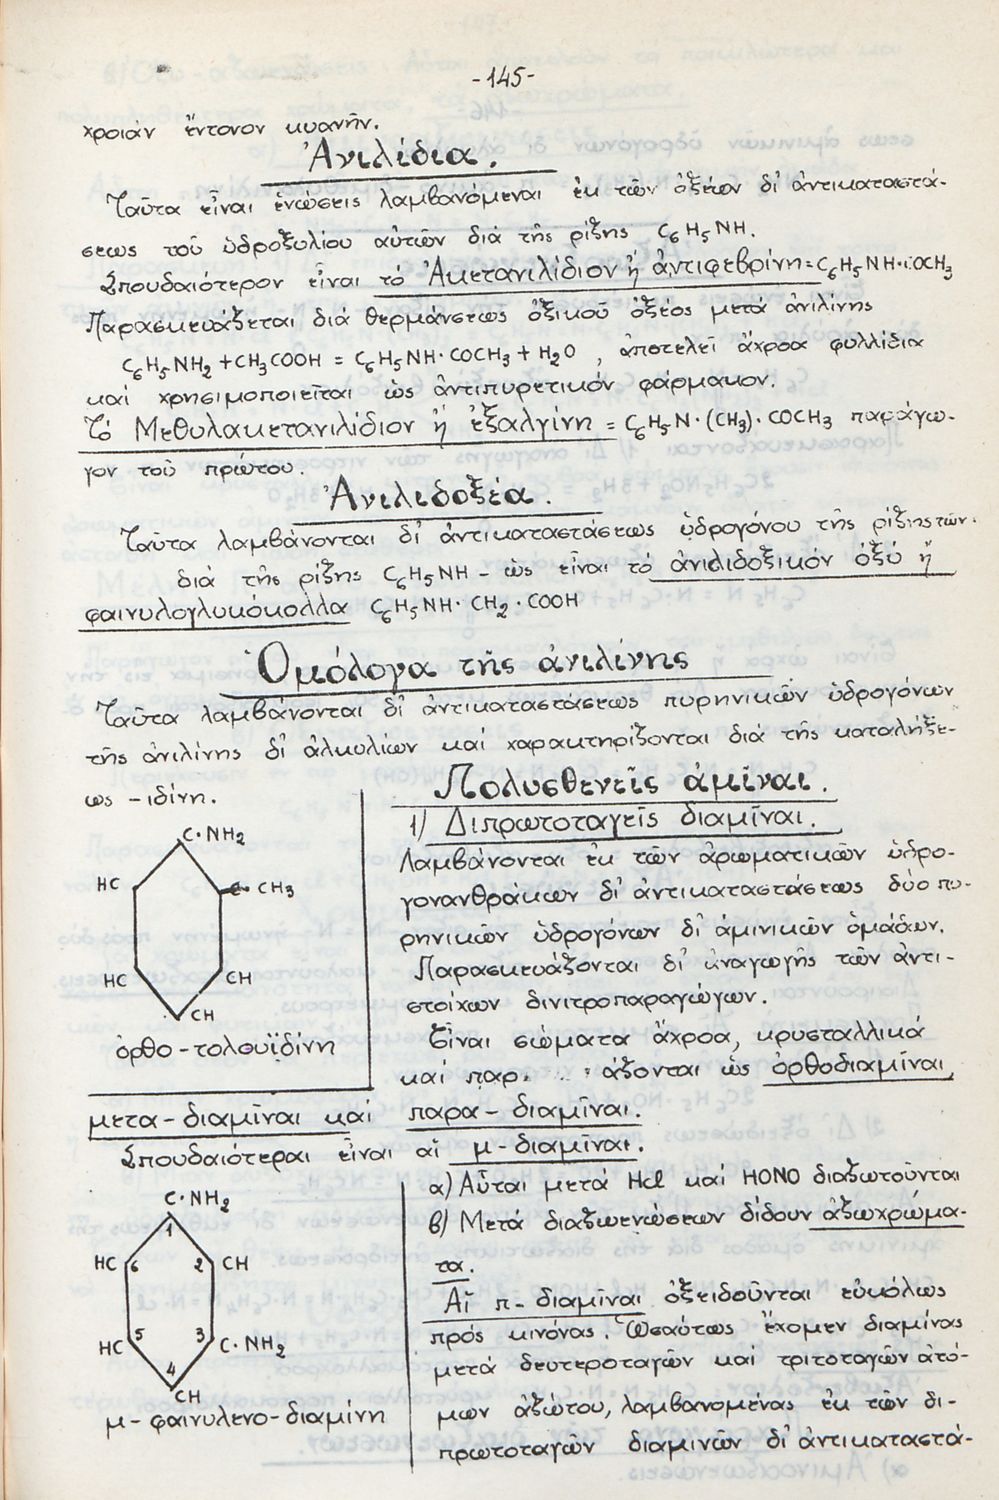 -145-
χροιάν ἔντονον κυανῆν.
Ἀνιλίδια.
Ταῦτα εἶναι ἑνώσεις λαμβανόμεναι ἐκ τῶν ὀξέων δι' ἀντικαταστά-
σεως τοῦ ὑδροξυλίου αὐτῶν διά τῆς ρίζης C₆H₅NH.
Σπουδαιότερον εἶναι τό Ἀκετανιλίδιον ἤ ἀντιφεβρίνη = C₆H₅NH·COCH₃
Παρασκευάζεται διά θερμάνσεως ὀξικοῦ ὀξέος μετά ἀνιλίνης
C₆H₅NH₂ + CH₃COOH = C₆H₅NH·COCH₃ + H₂O , ἀποτελεῖ ἄχροα φυλλίδια
καί χρησιμοποιεῖται ὡς ἀντιπυρετικόν φάρμακον.
Τό Μεθυλακετανιλίδιον ἤ ἐξαλγίνη = C₆H₅·N·(CH₃)·COCH₃ παράγω-
γον τοῦ πρώτου.
Ἀνιλιδοξέα.
Ταῦτα λαμβάνονται δι' ἀντικαταστάσεως ὑδρογόνου τῆς ρίζης τῶν
διά τῆς ρίζης C₆H₅NH - ὡς εἶναι τό ἀνιλιδοξικόν ὀξύ ἤ
φαινυλογλυκόκολλα C₆H₅NH·CH₂·COOH
Ὁμόλογα τῆς ἀνιλίνης
Ταῦτα λαμβάνονται δι' ἀντικαταστάσεως πυρηνικῶν ὑδρογόνων
τῆς ἀνιλίνης δι' ἀλκυλίων καί χαρακτηρίζονται διά τῆς καταλήξε-
ως -ιδίνη.
C·NH₂
HC
C CH₃
HC
CH
CH
ὀρθο-τολουϊδίνη
Πολυσθενεῖς ἀμῖναι.
1) Διπρωτοταγεῖς διαμῖναι.
Λαμβάνονται ἐκ τῶν ἀρωματικῶν ὑδρο-
γονανθράκων δι' ἀντικαταστάσεως δύο πυ-
ρηνικῶν ὑδρογόνων δι' ἀμινικῶν ὁμάδων.
Παρασκευάζονται δι' ἀναγωγῆς τῶν ἀντι-
στοίχων δινιτροπαραγώγων.
Εἶναι σώματα ἄχροα, κρυσταλλικά
καί ὡς ὀρθοδιαμῖναι,
μετα-διαμῖναι καί παρα-διαμῖναι.
Σπουδαιότεραι εἶναι αἱ μ-διαμῖναι.
C·NH₂
1
HC 6 2 CH
HC 5 3 C·NH₂
4
CH
μ-φαινυλενο-διαμίνη
α) Αὗται μετά Hcl καί HONO διαζωτοῦνται
β) Μετά διαζωενώσεων δίδουν ἀζωχρώμα-
τα.
Αἱ π-διαμῖναι ὀξειδοῦνται εὐκόλως
πρός κινόνας. Ὡσαύτως ἔχομεν διαμίνας
μετά δευτεροταγῶν καί τριτοταγῶν ἀτό-
μων ἀζώτου, λαμβανομένας ἐκ τῶν δι-
πρωτοταγῶν διαμινῶν δι' ἀντικαταστά-